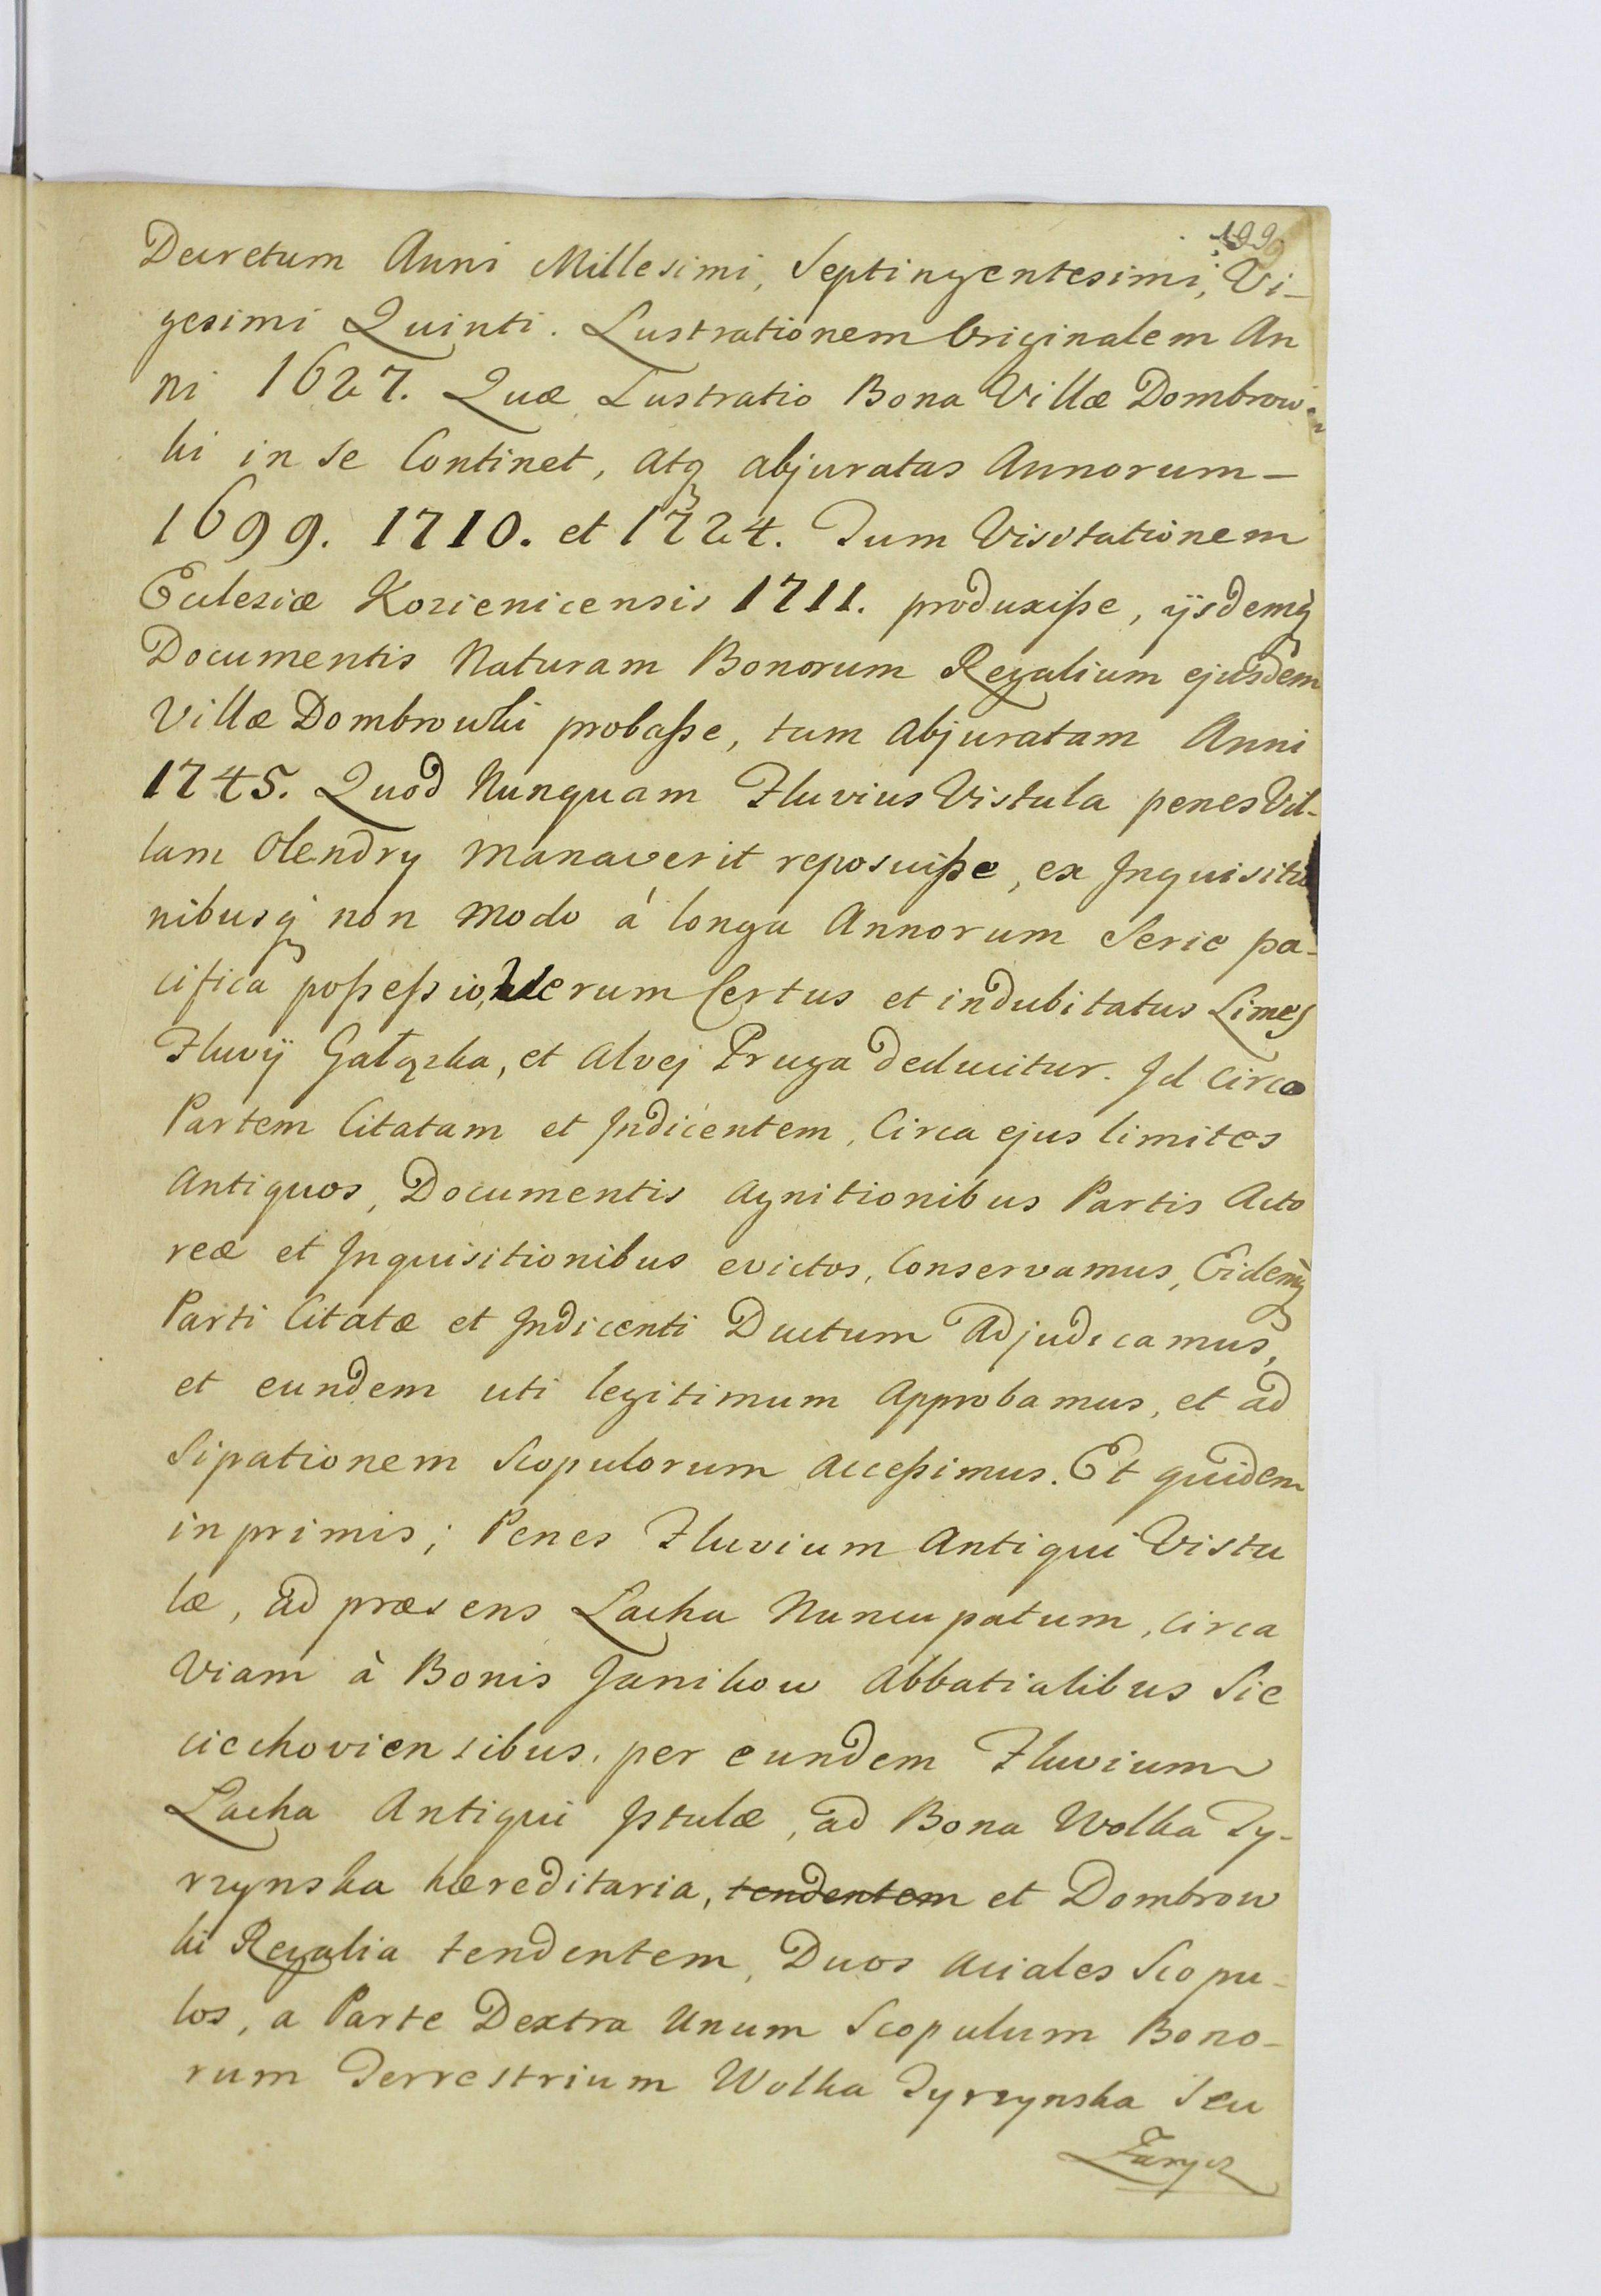 199
Decretum Anni Millesimi, Septingentesimi, Vi-
gesimi Quinti. Lustrationem Originalem An
ni 1627. Quæ Lustratio Bona Villæ Dombrow-
ki in se Continet, atq abjuratas Annorum-
1699. 1710. et 1724. Tum Visitationem
Eclesiæ Kozienicensis 1711. produxiße, ijsdemq
Documentis Naturam Bonorum Regalium ejusdem
Villæ Dombrowki probaße, tum abjuratam Anni
1745. Quod Nunquam Fluvius Vistula penes Vil-
lam Olendry manaverit reposuiße, ex Inquisitio
nibusq non modo á longa Annorum Serie pa-
cifica poßeßio, Verum Certus et indubitatus Limes
Fluvij Gałązka, et Alvej Pruga deducitur. Id circo
Partem Citatam et Indicentem, Circa ejus limites
antiquos, Documentis agnitionibus Partis Acto
reæ et Inquisitionibus evictos, Conservamus, Eidemq
Parti Citatæ et Indicenti Ductum Adjudicamus,
et eundem uti legitimum Approbamus, et ad
Sipationem Scopulorum acceßimus. Et quidem
inprimis; Penes Fluvium antiqui Vistu
læ, ad præsens Lacha Nuncupatum, circa
Viam à Bonis Janikow Abbatialibus Sie
ciechoviensibus, per eundem Fluvium
Lacha Antiqui Istulæ, ad Bona Wolka Ty-
rzynska hæreditaria, tendentem et Dombrow
ki Regalia tendentem, Duos aciales Scopu-
los, a Parte Dextra Unum Scopulum Bono-
rum Terrestrium Wolka Tyrzynska Seu